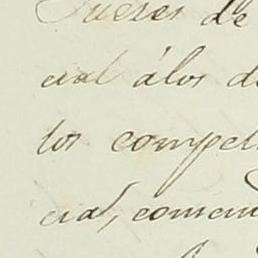 Jueces de
cial á los d
los compet
cial, comun